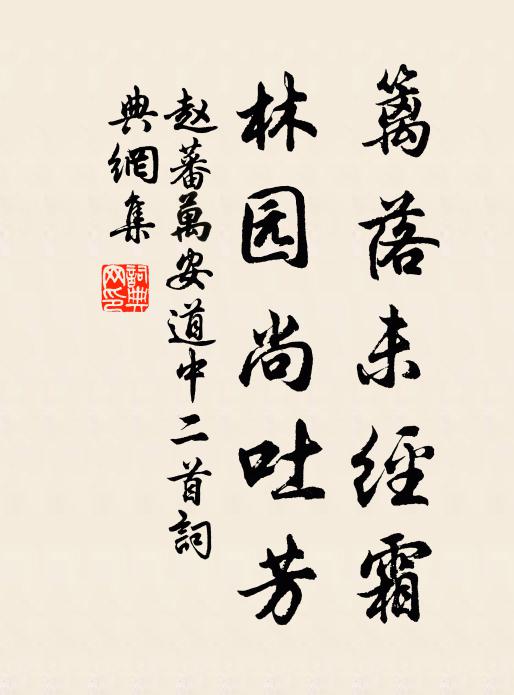 籬落未經霜
林园尚吐芳
赵蕃萬安道中二首詞
典網集
詞典网印